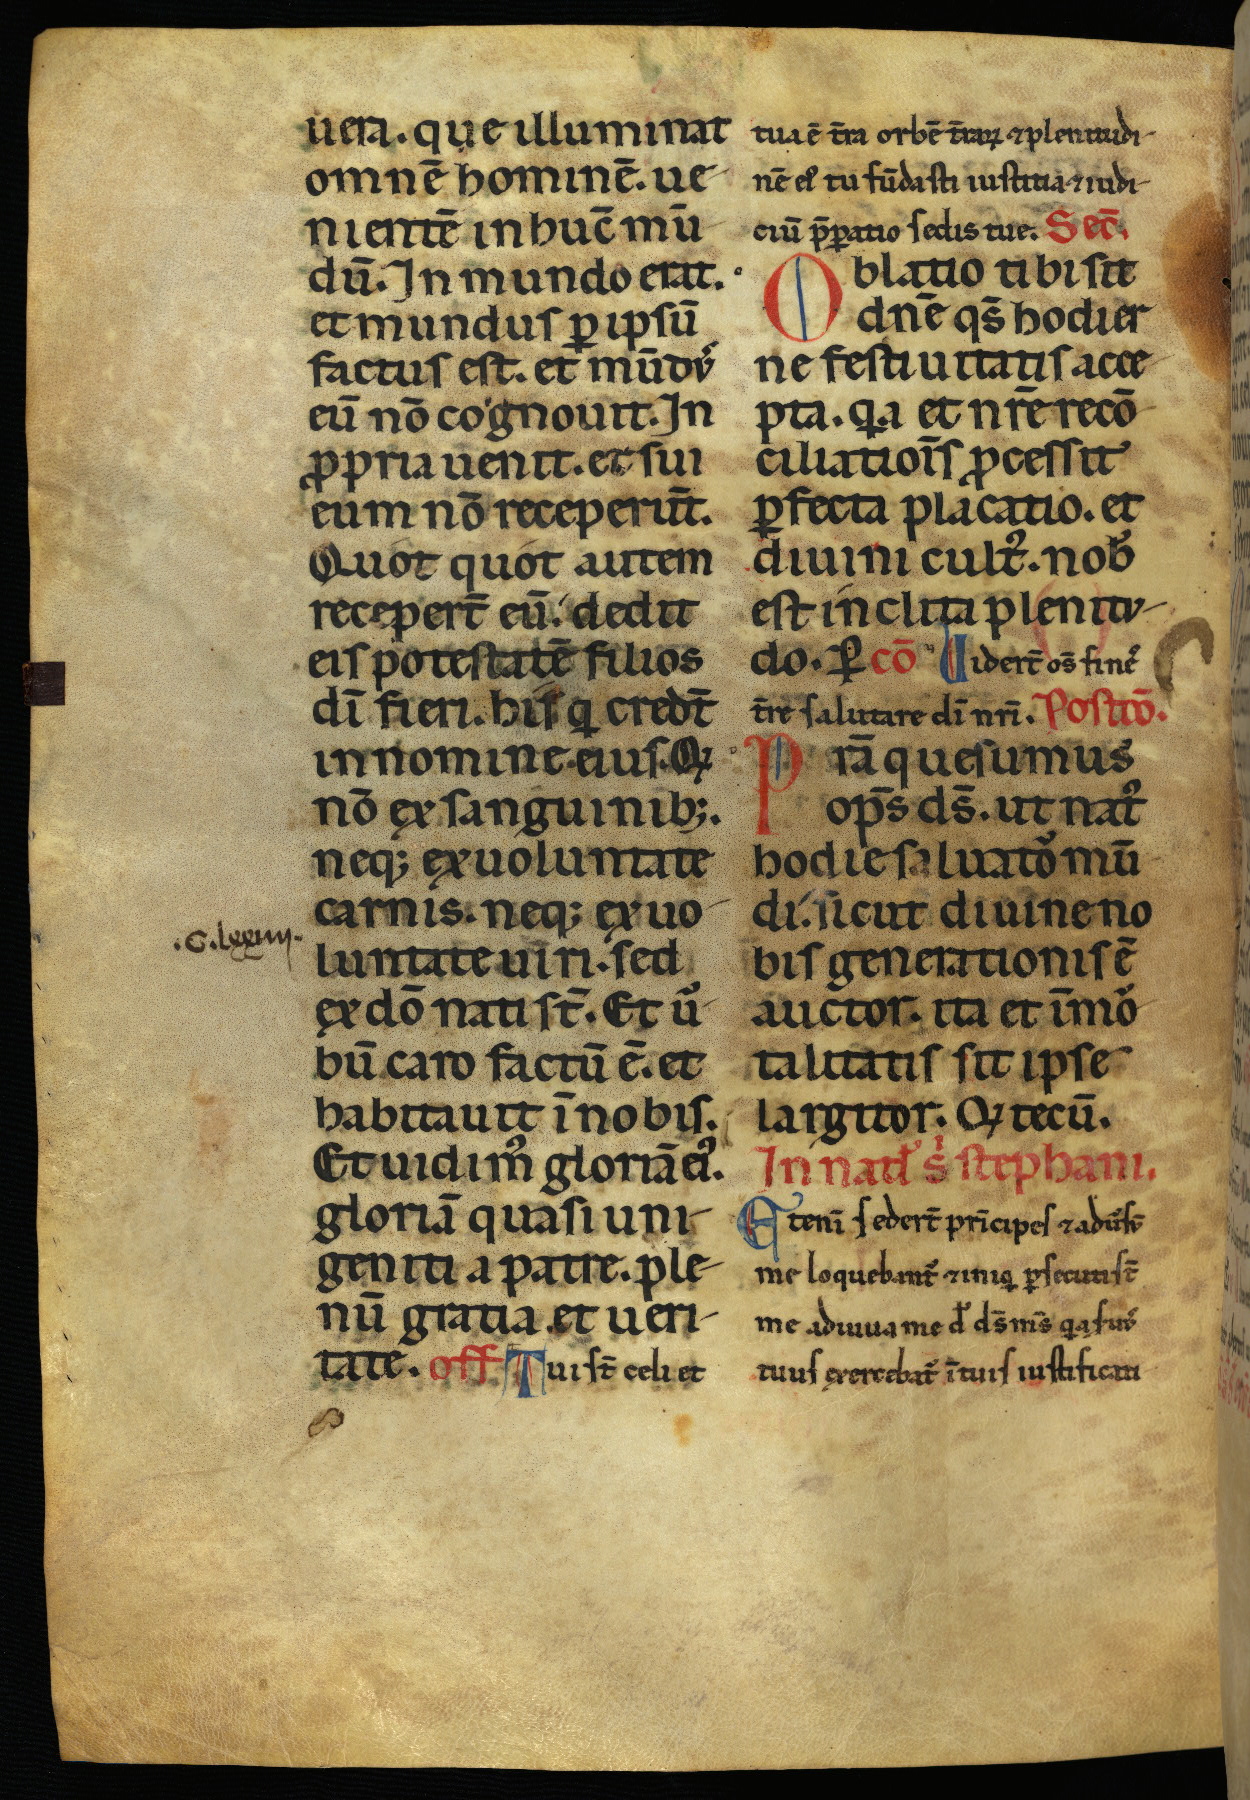 uera. que illuminat
omnē hominē. ue-
nientē in huc̄ mū
dū. In mundo erat.
et mundus ꝑ ipsū
factus est. et mūdus
eū nō cognouit. In
ꝓpria uenit. et sui
eum nō receperūt.
Quot quot autem
recepert̄ eū. dedit
eis potestatē filios
dī fieri. his q credt̄
in nomine eius. Qꝫ
nō ex sanguinibꝫ.
neqꝫ ex uoluntate
carnis. neqꝫ ex uo-
.G.lxxiiii.
luntate uiri. sed
ex dō nati st̄. Et u̅-
bū caro factū ē. et
habitauit ī nobis.
Et uidim᷒ gloriā ei᷒.
gloriā quasi uni-
geniti a patre. ple-
nū gratia. et ueri-
tate. off Tui st̄ celi et
tua ē t̄ra orbē t̄raꝝ ⁊ plenitudi-
nē ei᷒ tu fūdasti iustitia ⁊ iudi-
ciū p̄ꝑatio sedis tue. Sec̄.
Oblatio tibi sit
dn̄e qs̄ hodier
ne festiuitatis acce-
pta. q.a et nr̄e recō-
ciliatiōis ꝓcessit
ꝑfecta placatio. et
diuini cult᷒. nob̄
est in clita plenitu-
do. ꝑ cō Uidert̄ os̄ fines
t̄re salutare dī nr̄i. Postcō.
Pr̄a quesumus
op̄s ds̄. ut nat᷒
hodie saluator mū-
di. sicut diuine no
bis generationis ē
auctor. ita et īmor-
talitatis sit ipse
largitor. Qꝫ tecū.
In nat̄ s̄ stephani.
Etenī sedert̄ prīcipes ⁊ adu̅s̄
me loquebant᷑ ⁊ iniq ꝑsecuti st̄
me adiuua me d̄ ds̄ ms̄ q.a suus
tuus exercebat᷑ ī tuis iustificati